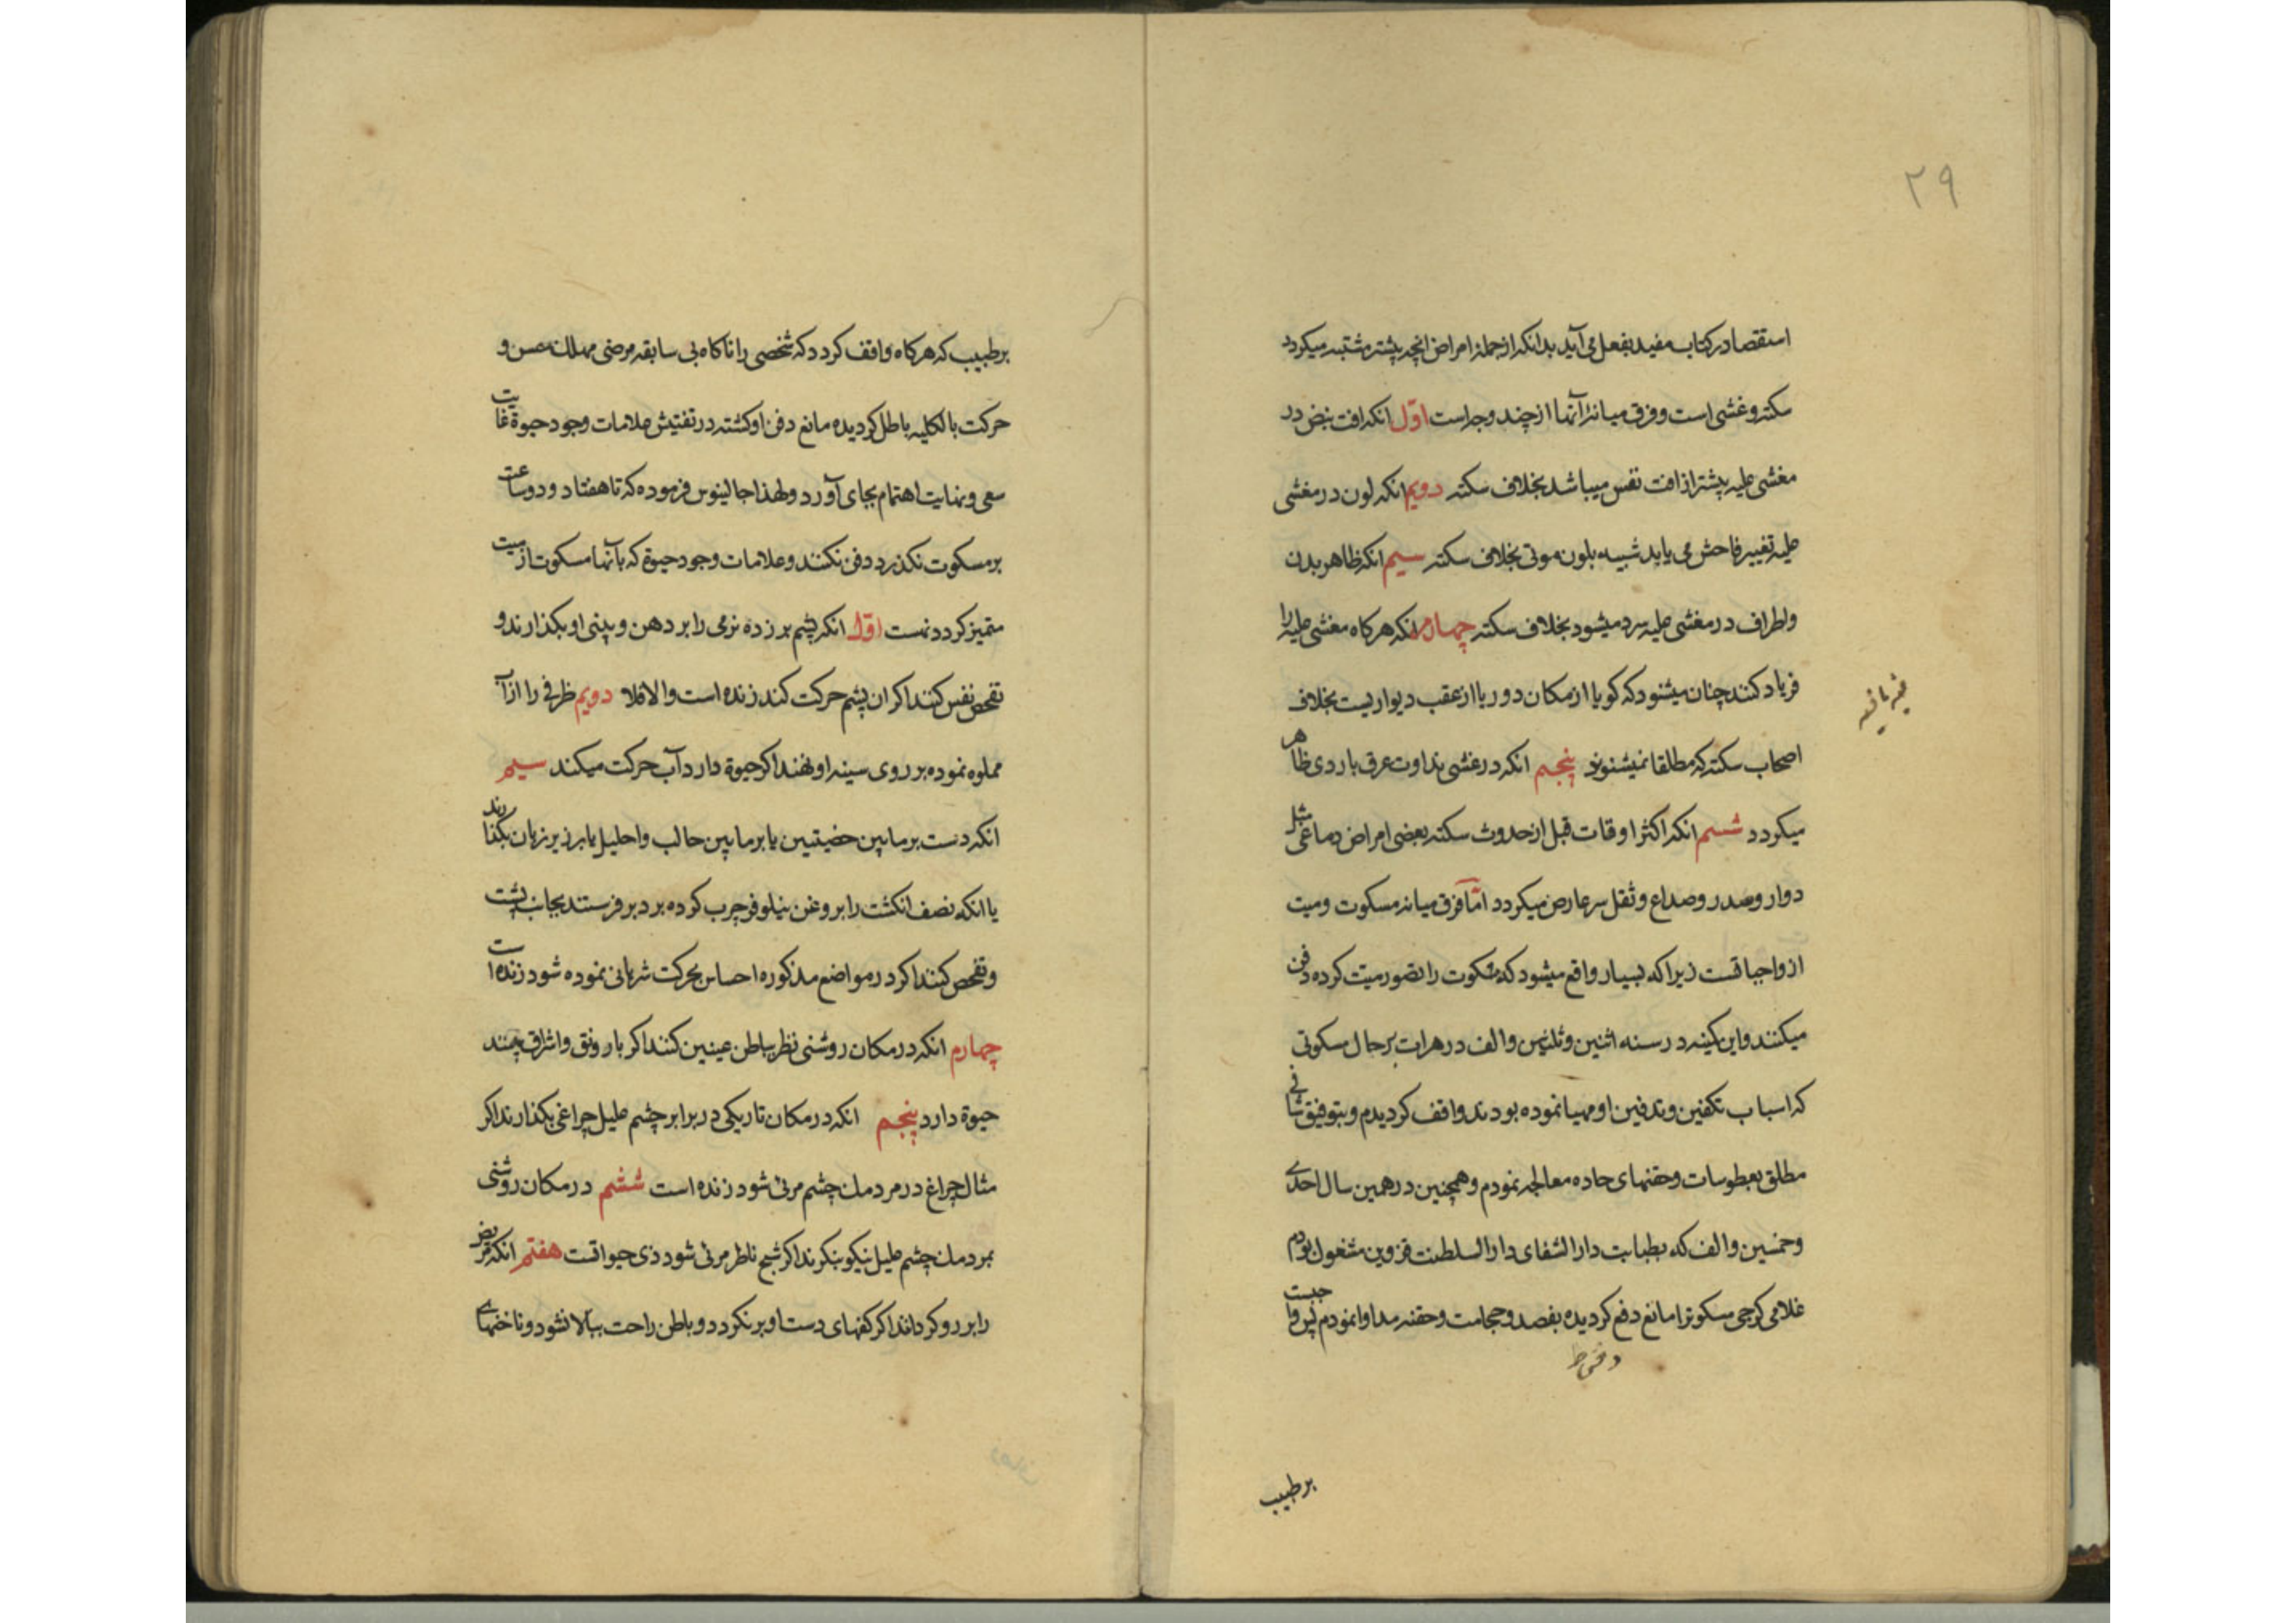 ۲۹
استقصا در کتاب مفید بفعل می آید بدانکه از جمله امراض انچه بیشتر مشتبه میکردد
سکته و غشی است و فرق میانهٔ آنها از چند وجه است اوّل انکه افت نبض در
مغشی علیه بیشتر از افت نفس میباشد بخلاف سکته دویم انکه لون در مغشی
علیه تغییر فاحش می یابد شبیه بلون موتی بخلاف سکته سیم انکه ظاهر بدن
و اطراف در مغشی علیه سرد میشود بخلاف سکته چهارم انکه هرکاه مغشی علیه را
فریاد کنند چنان میشنود که کویا از مکان دور یا از عقب دیواریست بخلاف
اصحاب سکته که مطلقا نمیشنوند پنجم انکه در غشی نداوت عرق باردی ظاهر
میکردد ششم انکه اکثر اوقات قبل از حدوث سکته بعضی امراض دماغی مثل
دوار و صدر و صداع و ثقل سر عارض میکردد امّا فرق میانه مسکوت و میت
از واجباتست زیرا که بسیار واقع میشود که مسکوت را تصور میت کرده دفن
میکنند و این کینه در سنه اثنین و ثلثین و الف در هرات بر حال مسکوتی
که اسباب تکفین و تدفین او مهیا نموده بودند واقف کردیدم و بتوفیق شافی
مطلق بعطوسات و حقنهای حاده معالجه نمودم و همچنین در همین سال احدی
و خمسین و الف که بطبابت دار الشفای دار السلطنت قزوین مشغول بودم
غلامی کرجی مسکوترا مانع دفع کردیده بفصد و حجامت و حقنه مداوا نمودم پس واجبست
بر طبیب
بر طبیب که هرکاه واقف کردد که شخصی را ناکاه بی سابقه مرضی مهلک حس و
حرکت بالکلیه باطل کردیده مانع دفن او کشته در تفتیش علامات وجود حیوة غایت
سعی و نهایت اهتمام بجای آورد و لهذا جالینوس فرموده که تا هفتاد و دو ساعت
بر مسکوت نکذرد دفن نکنند و علامات وجود حیوة که بآنها مسکوت از میت
متمیز کردد نست اوّل انکه پشم بر زده نرمی را بر دهن و بینی او بکذارند و
تفحص نفس کنند اکر ان پشم حرکت کند زنده است و الا فلا دویم ظرفی را از آب
مملوه نموده بر روی سینه او نهند اکر حیوة دارد آب حرکت میکند سیم
انکه دست بر مابین خصیتین یا بر مابین حالب و احلیل یا بر زیر زبان بکذارند
یا انکه نصف انکشت را بروغن نیلوفر چرب کرده بر دبر فرستند بجانب پشت
و تفحص کنند اکر در مواضع مذکوره احساس بحرکت شریانی نموده شود زنده است
چهارم انکه در مکان روشنی نظر بباطن عینین کنند اکر با رونق و اشراق بینند
حیوة دارد پنجم انکه در مکان تاریکی در برابر چشم علیل چراغی بکذارند اکر
مثال چراغ در مردمک چشم مرئی شود زنده است ششم در مکان روشنی
بمردمک چشم علیل نیکو بنکرند اکر شبح ناظر مرئی شود ذی حیواتست هفتم انکه مریض
را بر رو کردانند اکر کفهای دست او برنکردد و باطن راحت ببالا نشود و ناخنهای